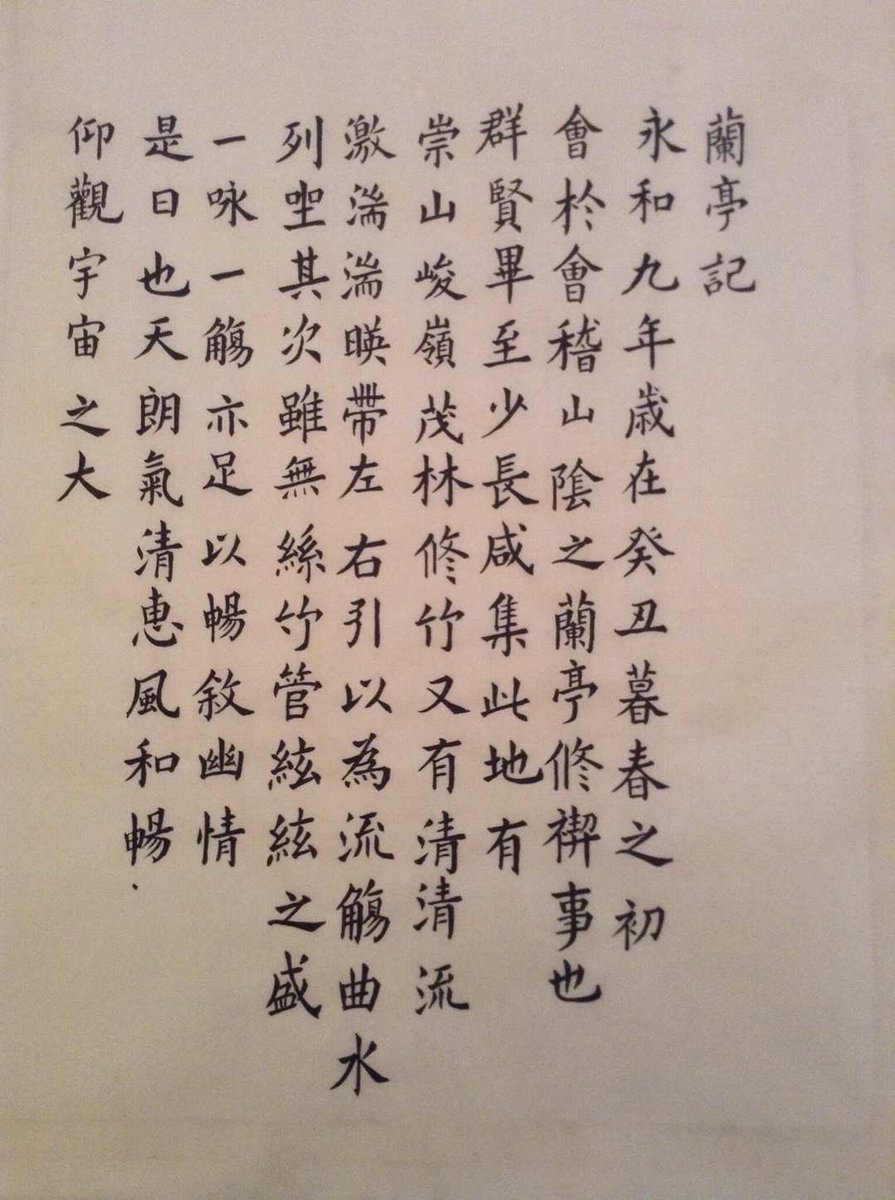 蘭亭記
永和九年歲在癸丑暮春之初
會於會稽山陰之蘭亭修禊事也
群賢畢至少長咸集此地有
崇山峻嶺茂林修竹又有清清流
激湍湍暎帶左右引以為流觴曲水
列坐其次雖無絲竹管絃絃之盛
一咏一觴亦足以暢敘幽情
是日也天朗氣清惠風和暢.
仰觀宇宙之大